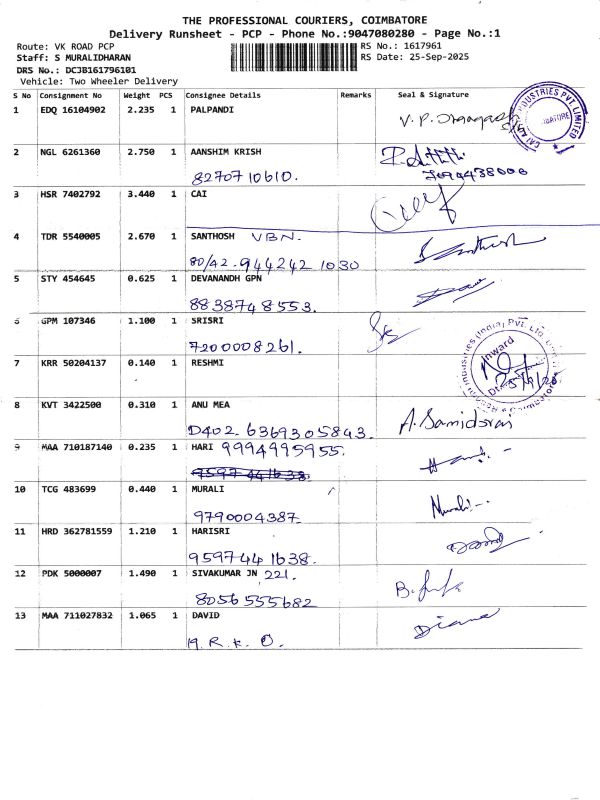 THE PROFESSIONAL COURIERS, COIMBATORE
Delivery Runsheet - PCP - Phone No.:9047080280 - Page No.:1
Route: VK ROAD PCP
Staff: S MURALIDHARAN
DRS No.: DCJB161796101
Vehicle: Two Wheeler Delivery
RS No.: 1617961
RS Date: 25-Sep-2025
S No Consignment No Weight PCS Consignee Details Remarks Seal & Signature
1 EDQ 16104902 2.235 1 PALPANDI
2 NGL 6261360 2.750 1 AANSHIM KRISH
8270710610.
3 HSR 7402792 3.440 1 CAI
4 TDR 5540005 2.670 1 SANTHOSH VBN.
80/A2.944242 1030
5 STY 454645 0.625 1 DEVANANDH GPN
8838748553.
6 GPM 107346 1.100 1 SRISRI
7200008261.
Inward
7 KRR 50204137 0.140 1 RESHMI
8 KVT 3422500 0.310 1 ANU MEA
D402. 6369305843. A. Samidurai
9 MAA 710187140 0.235 1 HARI 9994995955.
9597 441638.
10 TCG 483699 0.440 1 MURALI
9790004387. Murali
11 HRD 362781559 1.210 1 HARISRI
9597441638.
12 PDK 5000007 1.490 1 SIVAKUMAR JN 221.
8056 555682
13 MAA 711027832 1.065 1 DAVID
M. R. K. O. Diana